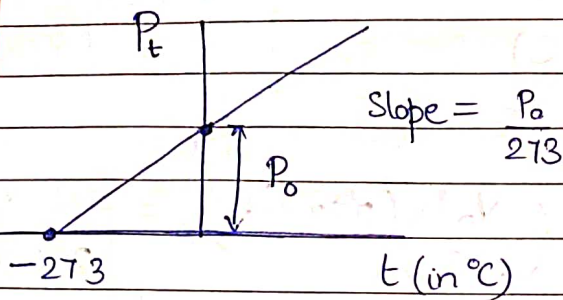 Pt
Slope = P0 / 273
P0
-273
t (in °C)